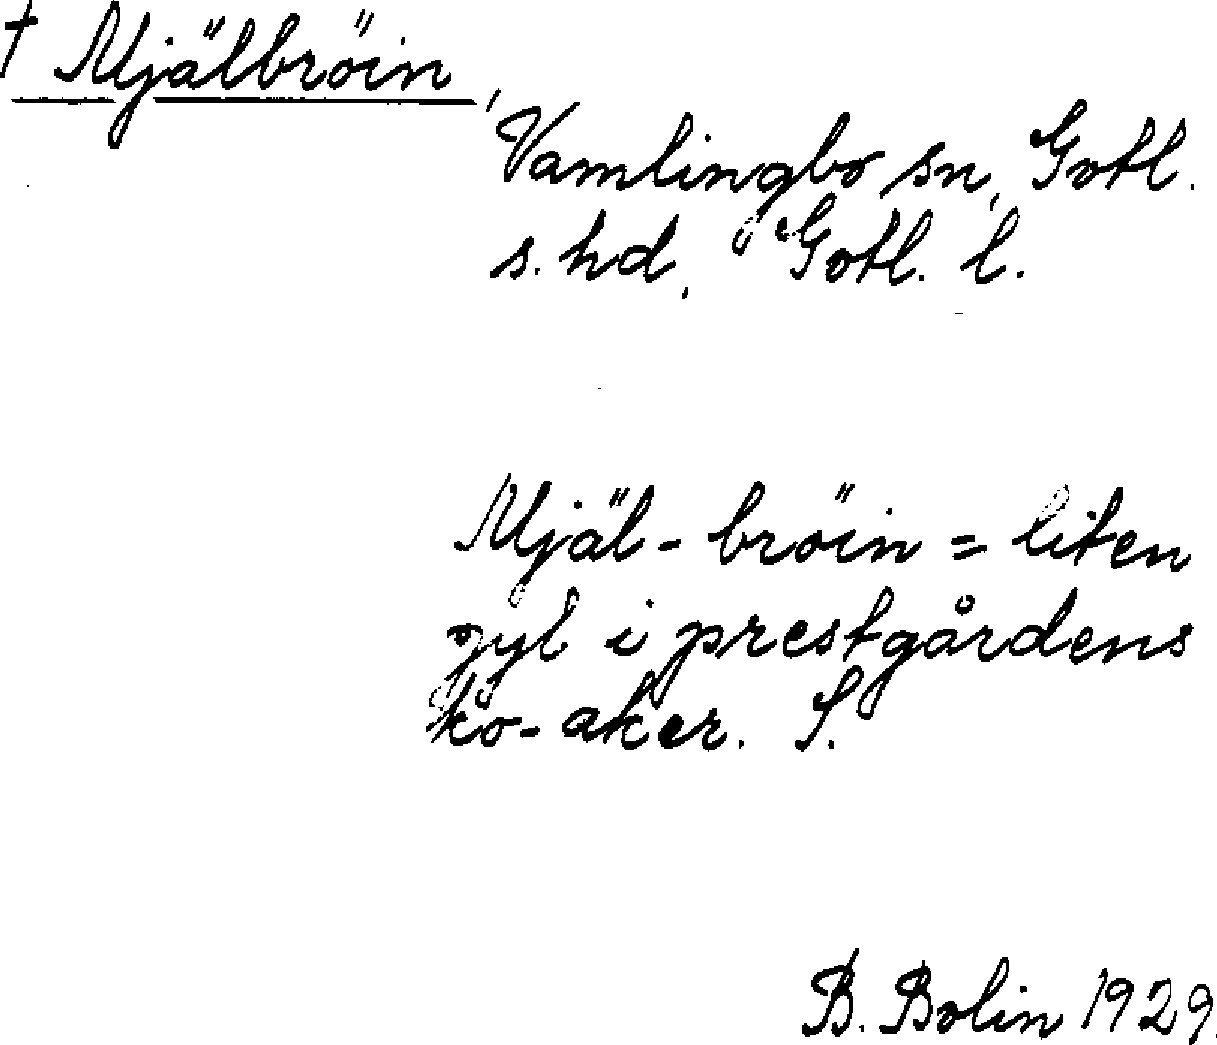 † Mjälbröin,
Vamlingbo sn, Gotl.
s. hd, Gotl. l.
Mjäl-bröin = liten
gyl i prestgårdens
ko-aker. S.
B. Bolin 1929.